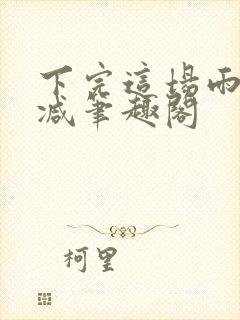 下完這場雨
減筆趣閣
柯里